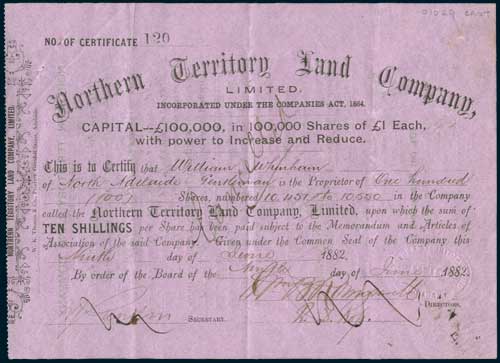 NO. OF CERTIFICATE 120
Northern Territory Land Company,
LIMITED.
INCORPORATED UNDER THE COMPANIES ACT, 1864.
CAPITAL—£100,000, in 100,000 Shares of £1 Each,
with power to Increase and Reduce.
This is to Certify that William Whinham
of North Adelaide Gentleman is the Proprietor of One hundred
(100) Shares, numbered 10,451 to 10,550 in the Company
called the Northern Territory Land Company, Limited, upon which the sum of
TEN SHILLINGS per Share has been paid subject to the Memorandum and Articles of
Association of the said Company. Given under the Common Seal of the Company this
Ninth day of June 1882.
By order of the Board of the Ninth day of June 1882.
SECRETARY.
DIRECTORS.
NORTHERN TERRITORY LAND COMPANY, LIMITED.